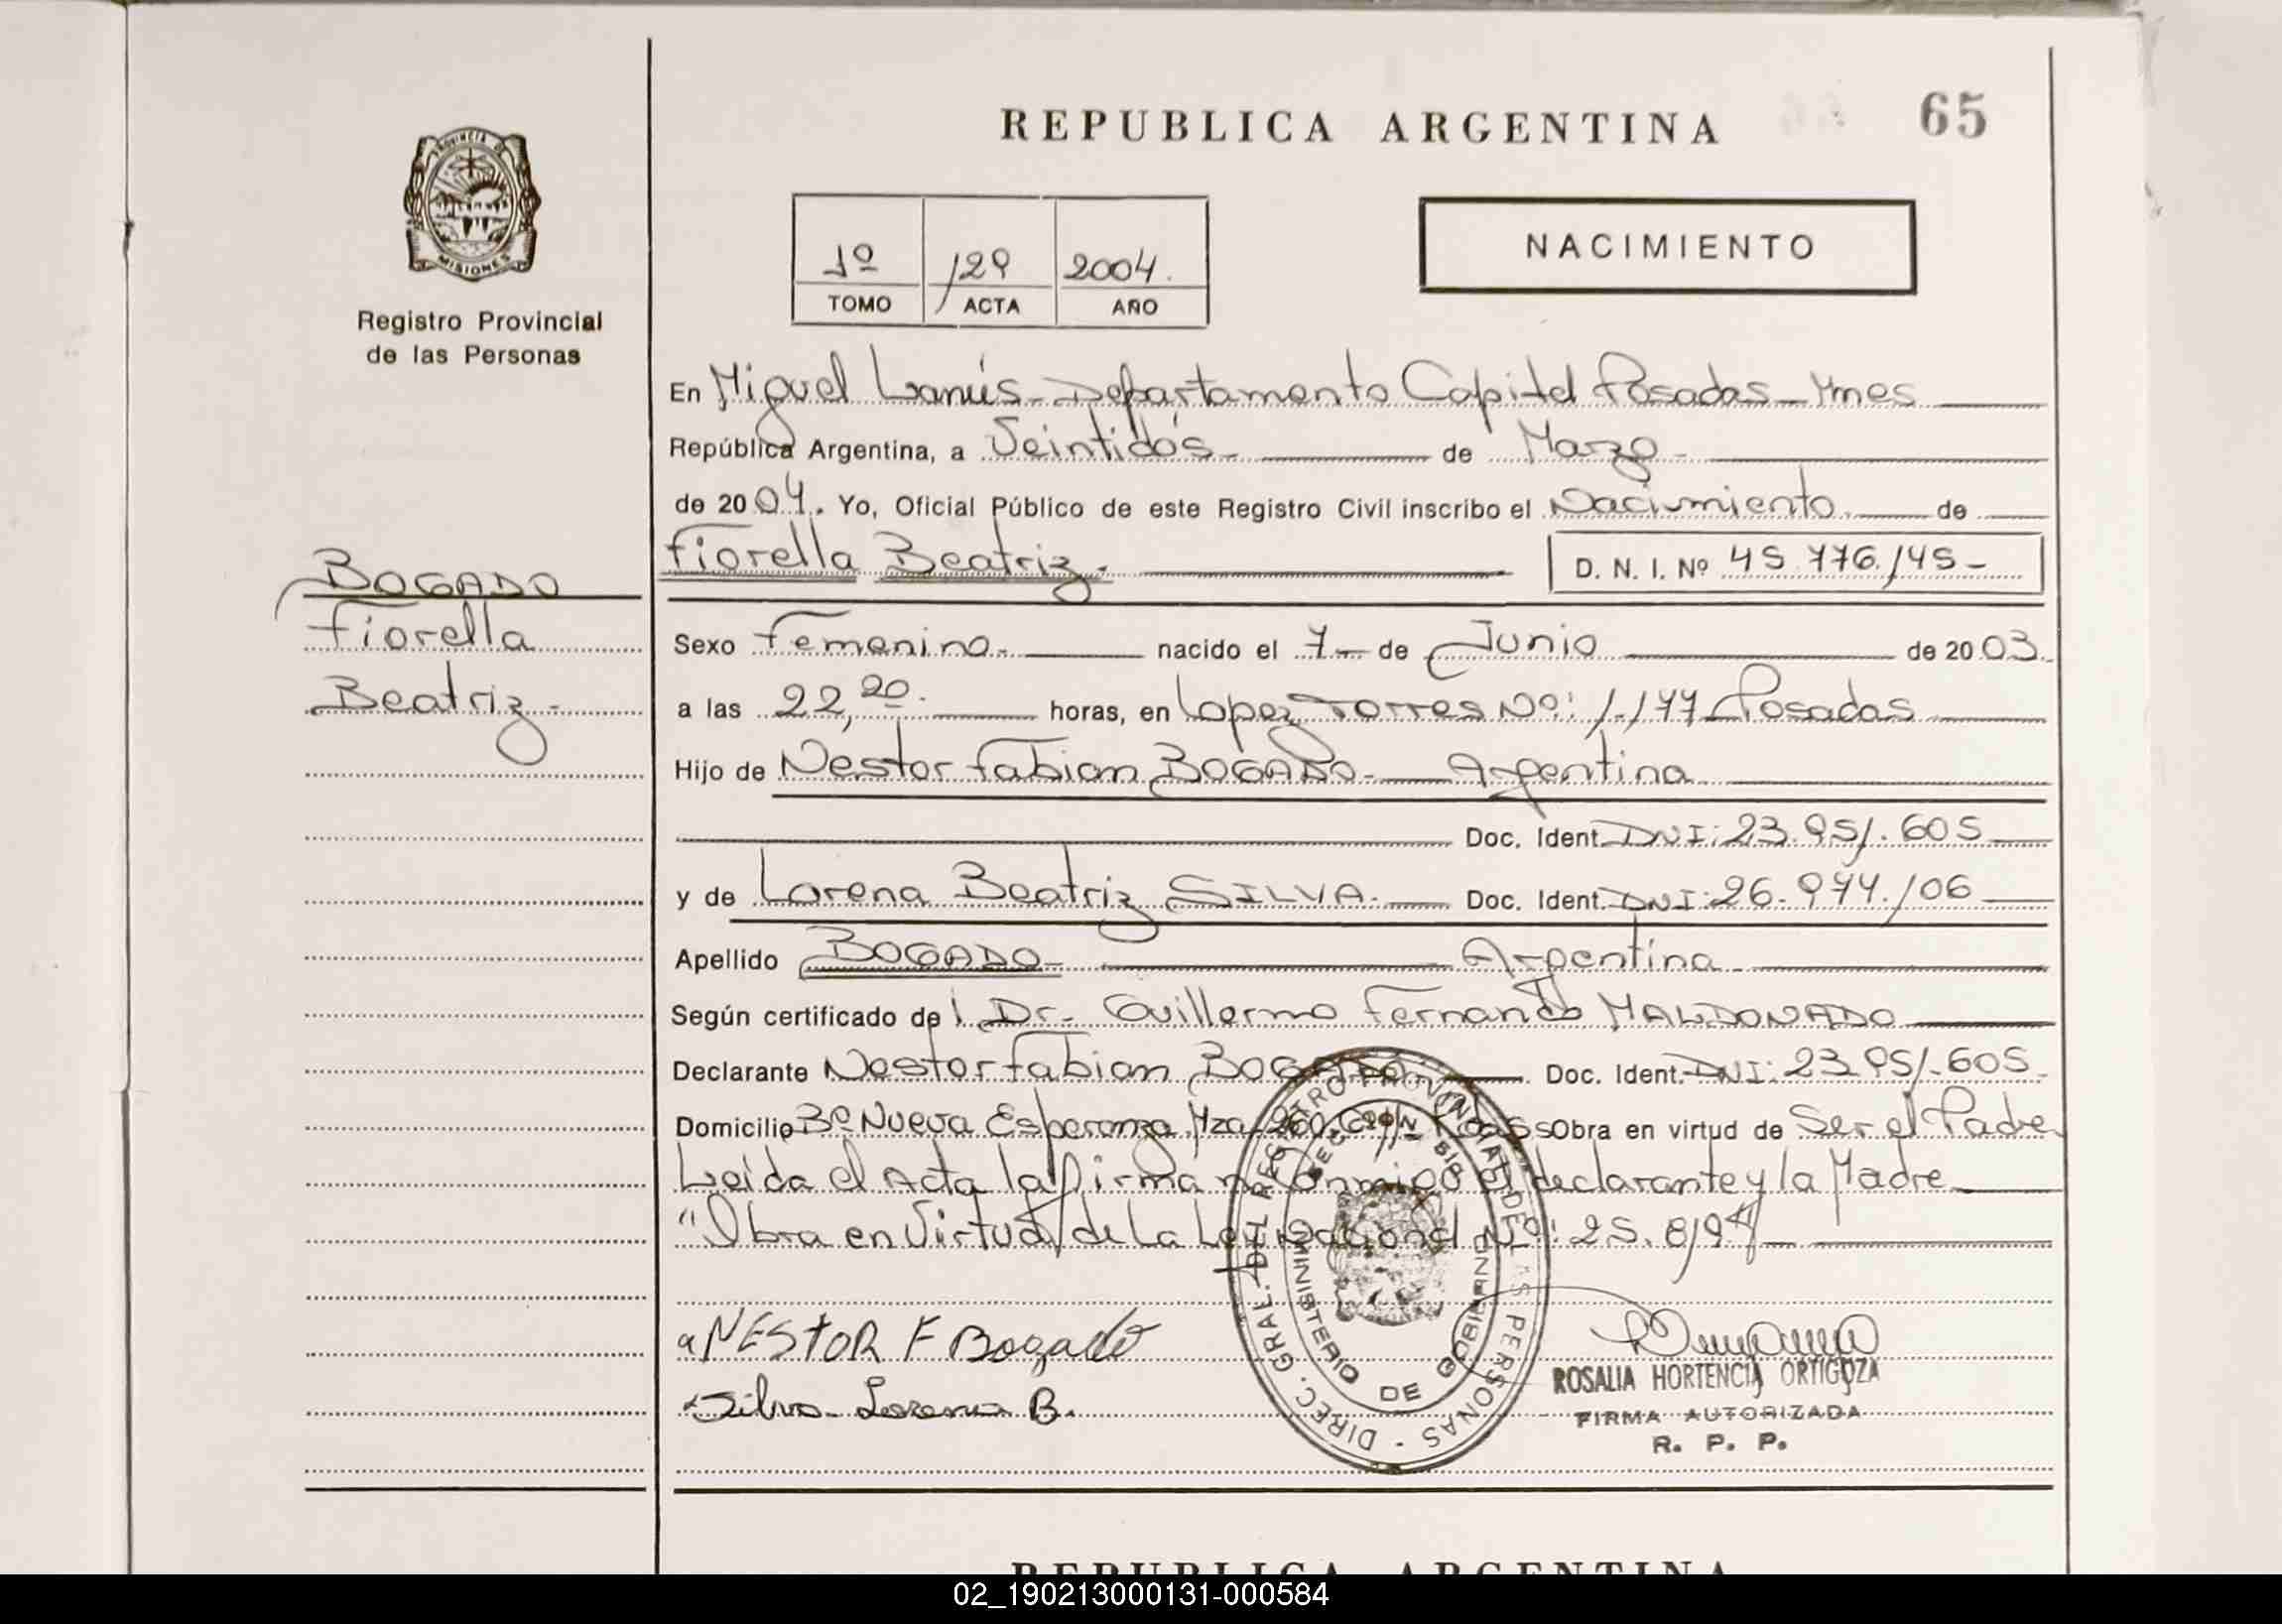 REPUBLICA ARGENTINA
65
PROVINCIA DE
MISIONES
Registro Provincial
de las Personas
1º 129 2004.
TOMO ACTA AÑO
NACIMIENTO
En Miguel Lanús - Departamento Capital Posadas - Mnes
República Argentina, a Veintidós - de Marzo -
de 2004. Yo, Oficial Público de este Registro Civil inscribo el Nacimiento de
Fiorella Beatriz. D. N. I. Nº 45.776.145-
BOGADO
Fiorella
Beatriz -
Sexo Femenino. nacido el 7 - de Junio de 2003.
a las 22,20. horas, en Lopez Torres Nº: 1.177 Posadas
Hijo de Nestor Fabian BOGADO. Argentina
Doc. Ident. DNI: 23.951.605
y de Lorena Beatriz SILVA. Doc. Ident. DNI: 26.974.106
Apellido BOGADO - Argentina
Según certificado del Dr. Guillermo Fernando MALDONADO
Declarante Nestor Fabian BOGADO. Doc. Ident. DNI: 23.951.605
Domicilio Bº Nueva Esperanza Mza Obra en virtud de Ser el Padre
Leída el Acta la firman Conmigo el declarante y la Madre
"Obra en Virtud de La Ley Nacional Nº: 25.819"
DIREC. GRAL. DEL REGISTRO PROVINCIAL DE LAS PERSONAS
MINISTERIO DE GOBIERNO
NESTOR F Bogado
Silva Lorena B.
ROSALIA HORTENCIA ORTIGOZA
FIRMA AUTORIZADA
R. P. P.
REPUBLICA ARGENTINA
02_190213000131-000584